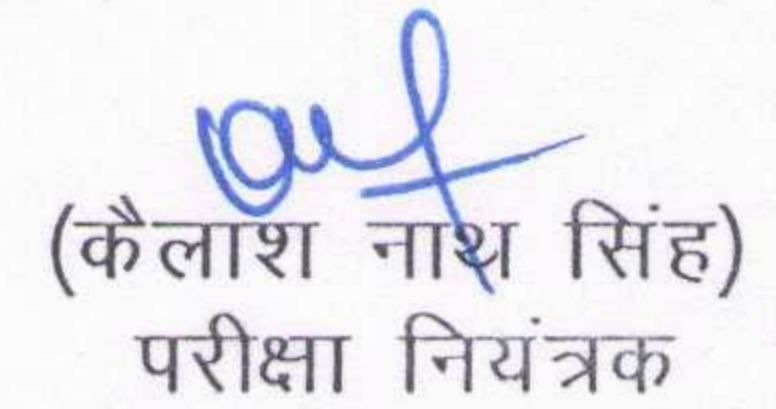 (कैलाश नाथ सिंह)
परीक्षा नियंत्रक